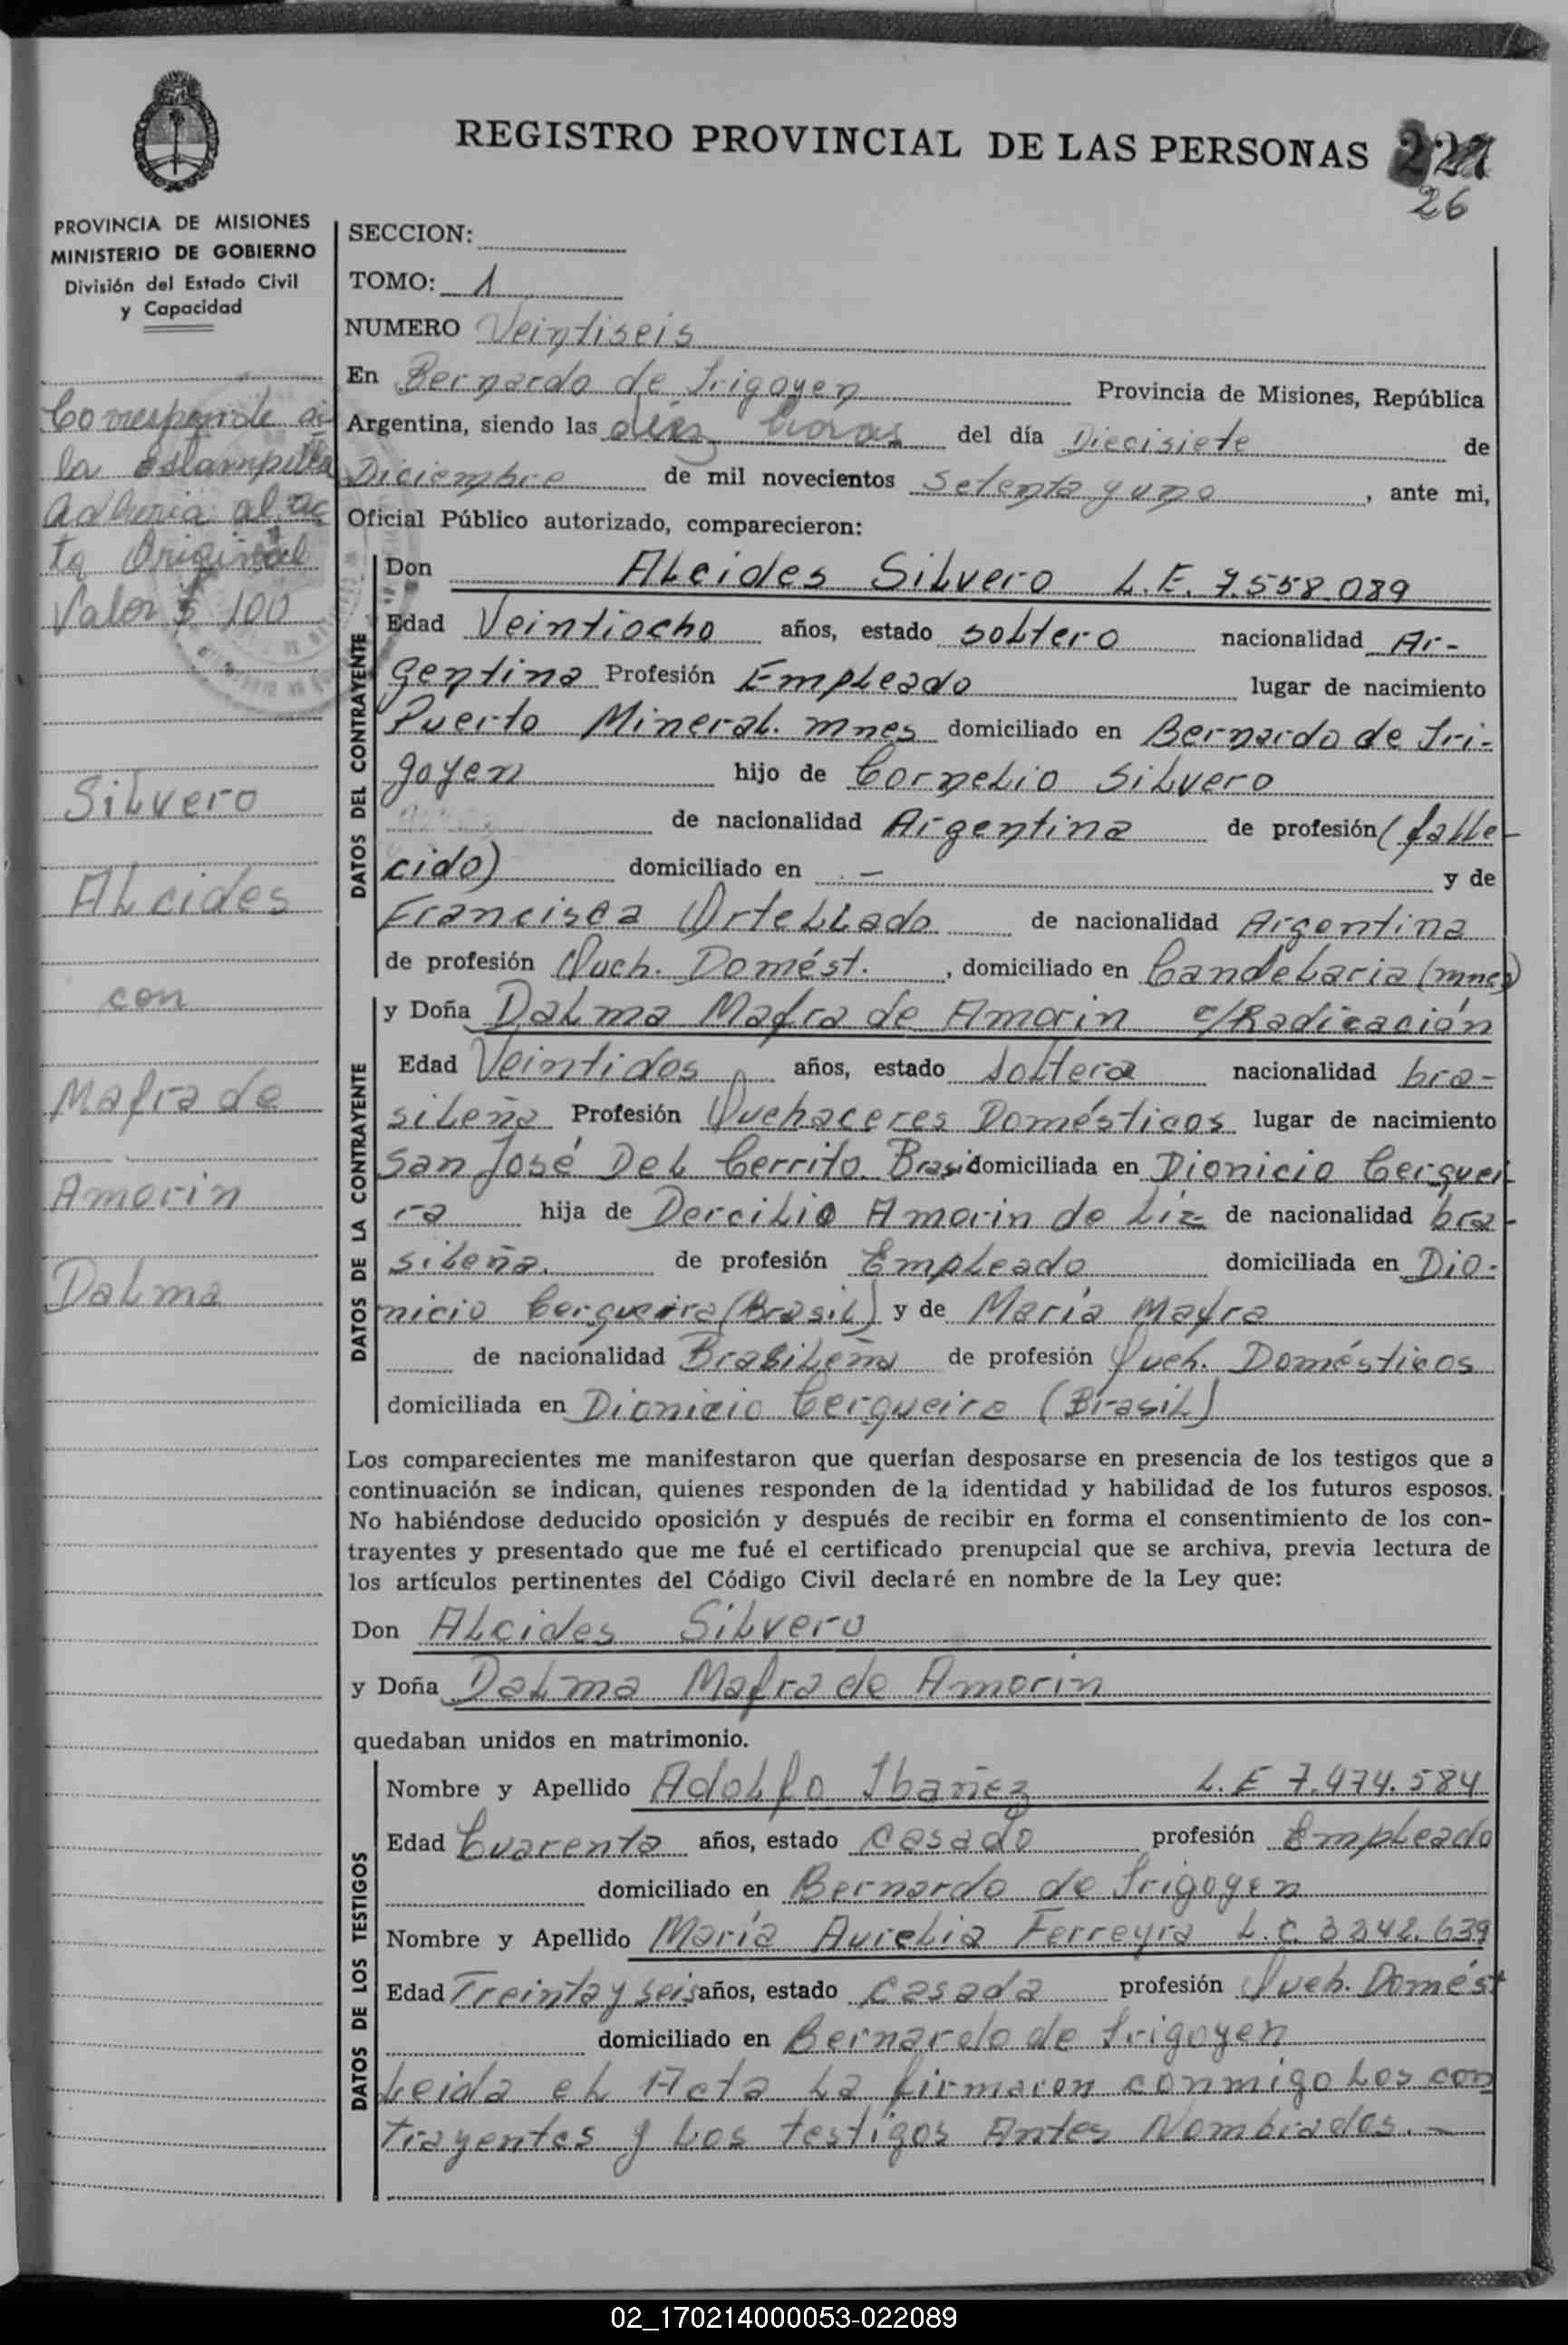 REGISTRO PROVINCIAL DE LAS PERSONAS
26
PROVINCIA DE MISIONES
MINISTERIO DE GOBIERNO
División del Estado Civil
y Capacidad
Corresponde a
la Estampilla
al ac
ta Original
Valor $ 100
Silvero
Alcides
con
Mafra de
Amorin
Dalma
SECCION:
TOMO: 1
NUMERO Veintiseis
En Bernardo de Irigoyen Provincia de Misiones, República
Argentina, siendo las diéz horas del día Diecisiete de
Diciembre de mil novecientos Setenta y uno, ante mi,
Oficial Público autorizado, comparecieron:
DATOS DEL CONTRAYENTE
Don Alcides Silvero L.E. 7.558.089
Edad Veintiocho años, estado soltero nacionalidad Ar-
gentina Profesión Empleado lugar de nacimiento
Puerto Mineral. mnes domiciliado en Bernardo de Iri-
goyen hijo de Cornelio Silvero
de nacionalidad Argentina de profesión (falle-
cido) domiciliado en . — y de
Francisca Ortellado de nacionalidad Argentina
de profesión Quch. Domést. , domiciliado en Candelaria (mnes)
DATOS DE LA CONTRAYENTE
y Doña Dalma Mafra de Amorin c/Radicación
Edad Veintidos años, estado soltera nacionalidad bra-
sileña Profesión Quehaceres Domésticos lugar de nacimiento
San José Del Cerrito. Brasil domiciliada en Dionicio Cerquei-
ra hija de Dercilio Amorin de Liz de nacionalidad bra-
sileña. de profesión Empleado domiciliada en Dio-
nicio Cerqueira (Brasil) y de María Mafra
de nacionalidad Brasileña de profesión Queh. Domésticos
domiciliada en Dionicio Cerqueira (Brasil)
Los comparecientes me manifestaron que querían desposarse en presencia de los testigos que a
continuación se indican, quienes responden de la identidad y habilidad de los futuros esposos.
No habiéndose deducido oposición y después de recibir en forma el consentimiento de los con-
trayentes y presentado que me fué el certificado prenupcial que se archiva, previa lectura de
los artículos pertinentes del Código Civil declaré en nombre de la Ley que:
Don Alcides Silvero
y Doña Dalma Mafra de Amorin
quedaban unidos en matrimonio.
DATOS DE LOS TESTIGOS
Nombre y Apellido Adolfo Ibañez L.E 7.474.584
Edad Cuarenta años, estado casado profesión Empleado
domiciliado en Bernardo de Irigoyen
Nombre y Apellido María Aurelia Ferreyra L.C. 3342.639
Edad Treinta y seis años, estado casada profesión Queh. Domést
domiciliado en Bernardo de Irigoyen
Leida el Acta la firmaron conmigo los con
trayentes y los testigos Antes Nombrados. —
02_170214000053-022089